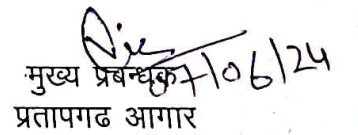 07/06/24
मुख्य प्रबन्धक
प्रतापगढ आगार